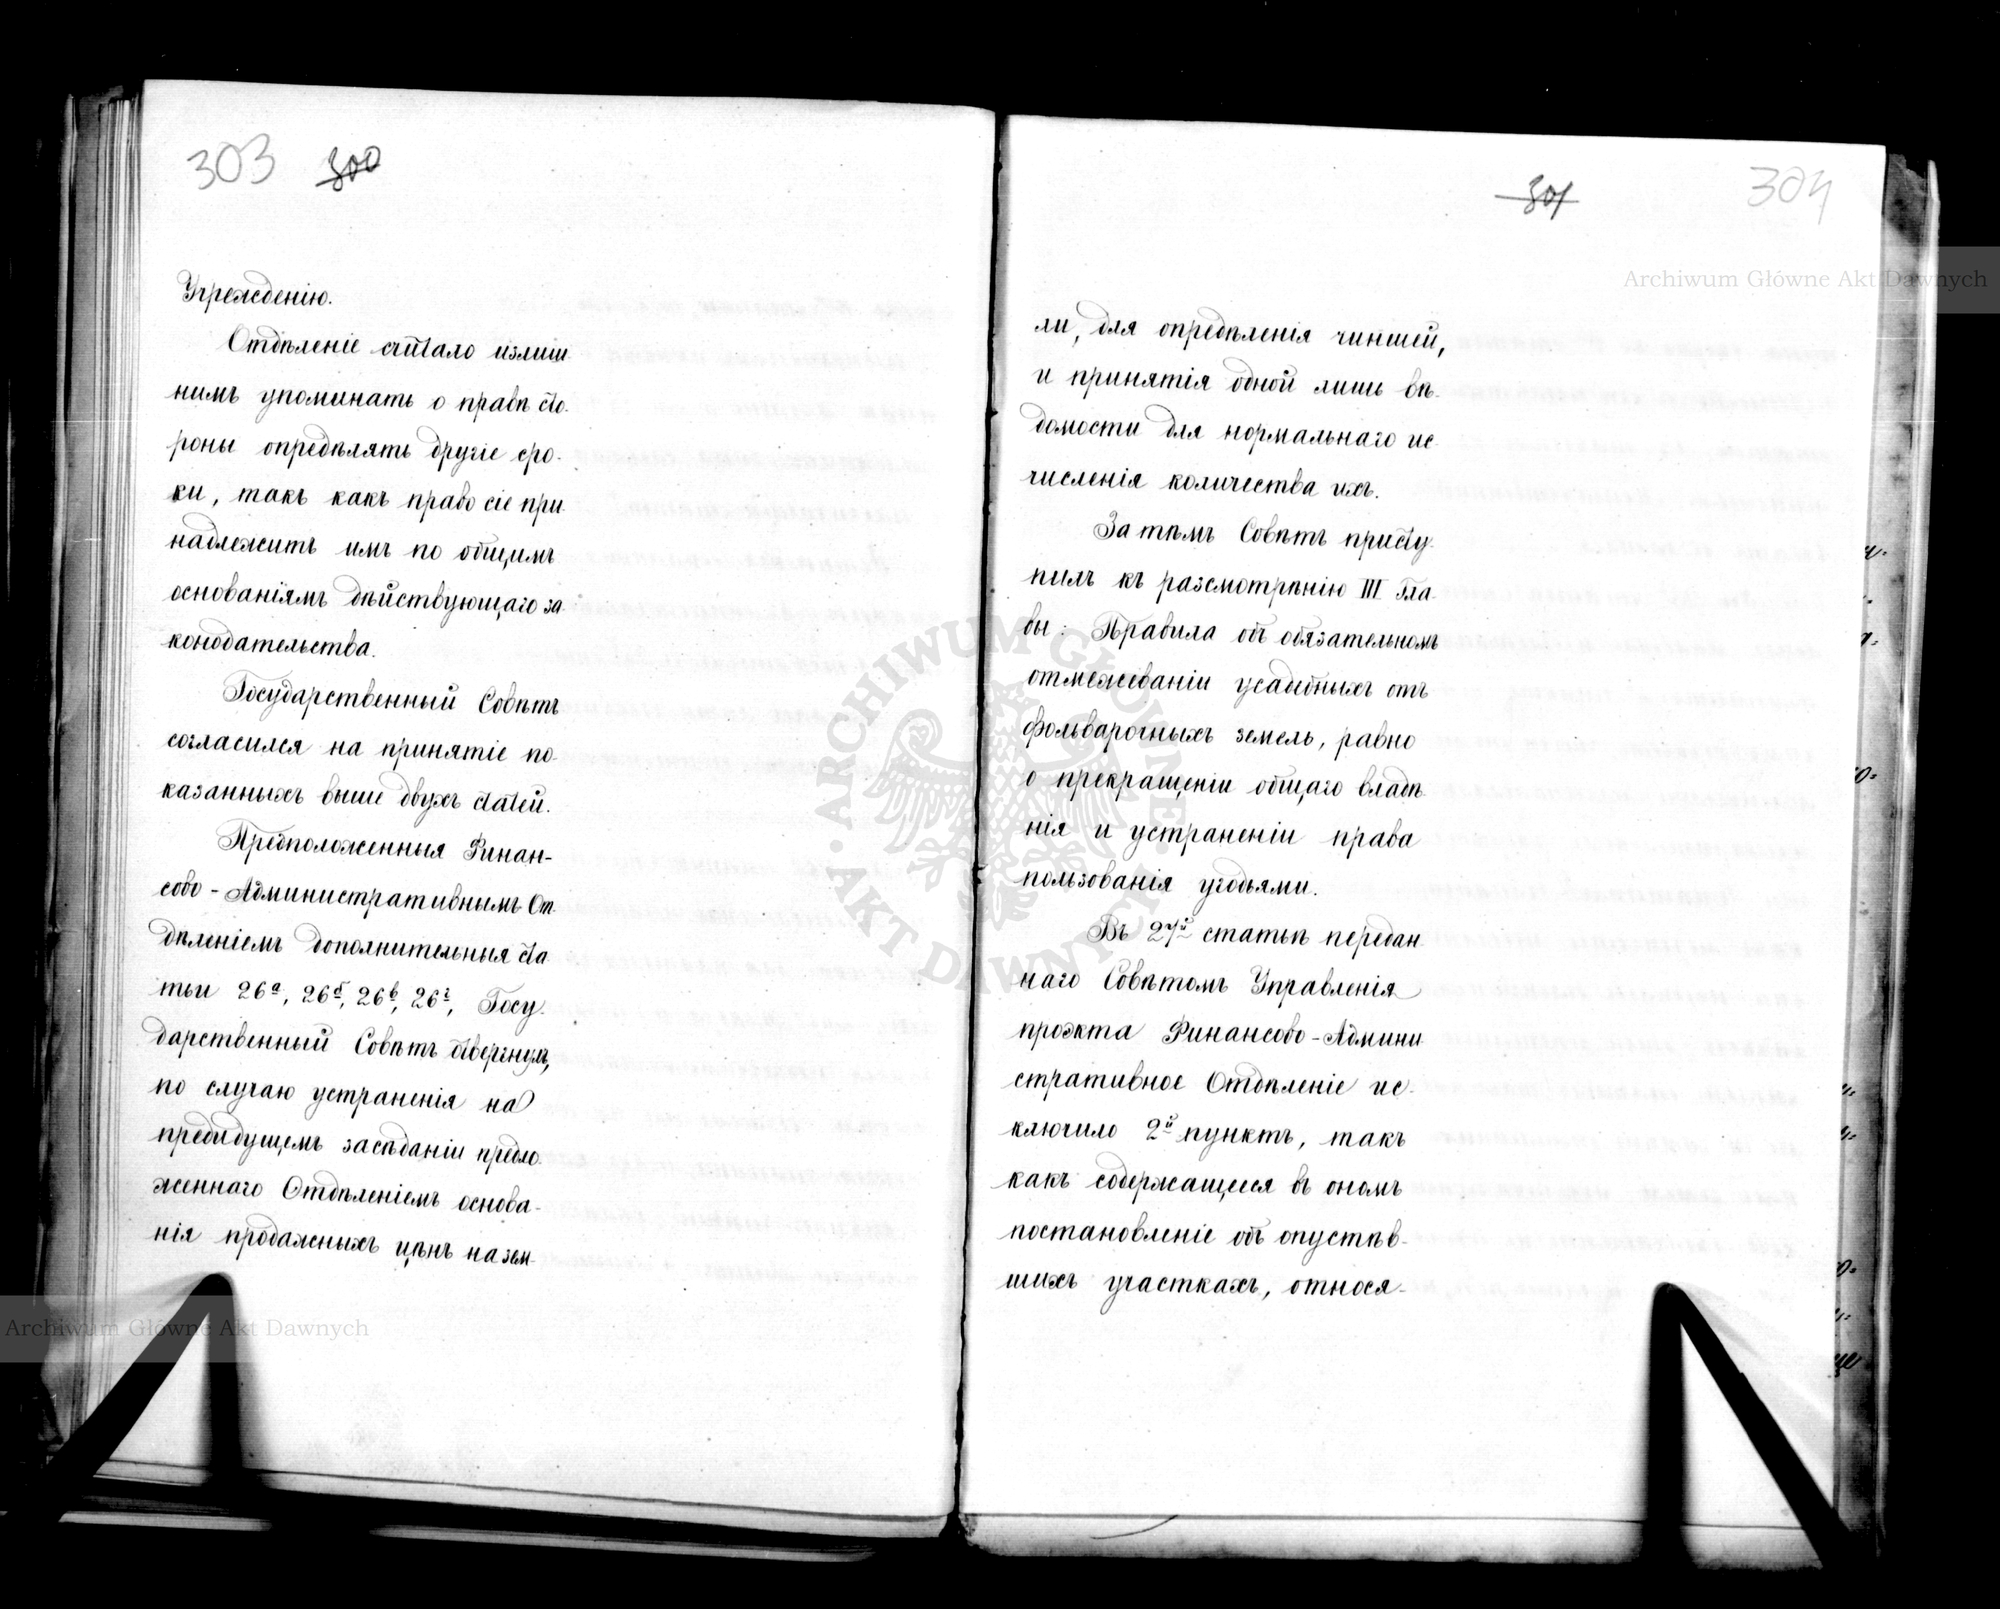 303 300
Учрежденію.
Отдѣленіе считало излиш
нимъ упоминать о правѣ сто-
роны опредѣлять другіе сро-
ки, такъ какъ право сіе при
надлежитъ имъ по общимъ
основаніямъ дѣйствующаго за
конодательства.
Государственный Совѣтъ
согласился на принятіе по-
казанныхъ выше двухъ статей.
Предположенныя Финан-
сово-Административнымъ От
дѣленіемъ дополнительныя ста
тьи 26а, 26б, 26в, 26г, Госу-
дарственный Совѣтъ отвергнулъ,
по случаю устраненія на
предидущемъ засѣданіи предло
женнаго Отдѣленіемъ основа-
нія продажныхъ цѣнъ на зем-
301 304
ли, для опредѣленія чиншей,
и принятія одной лишь вѣ-
домости для нормальнаго ис-
численія количества ихъ.
За тѣмъ Совѣтъ присту-
пилъ къ разсмотрѣнію III Гла-
вы: Правила объ обязательномъ
отмежеваніи усадебныхъ отъ
фольварочныхъ земель, равно
о прекращеніи общаго владѣ
нія и устраненіи права
пользованія угодьями.
Въ 27й статьѣ передан
наго Совѣтомъ Управленія
проэкта Финансово-Админи
стративное Отдѣленіе ис-
ключило 2й пунктъ, такъ
какъ содержащееся въ ономъ
постановленіе объ опустѣв-
шихъ участкахъ, относя-
Archiwum Główne Akt Dawnych
Archiwum Główne Akt Dawnych
ARCHIWUM GŁÓWNE AKT DAWNYCH